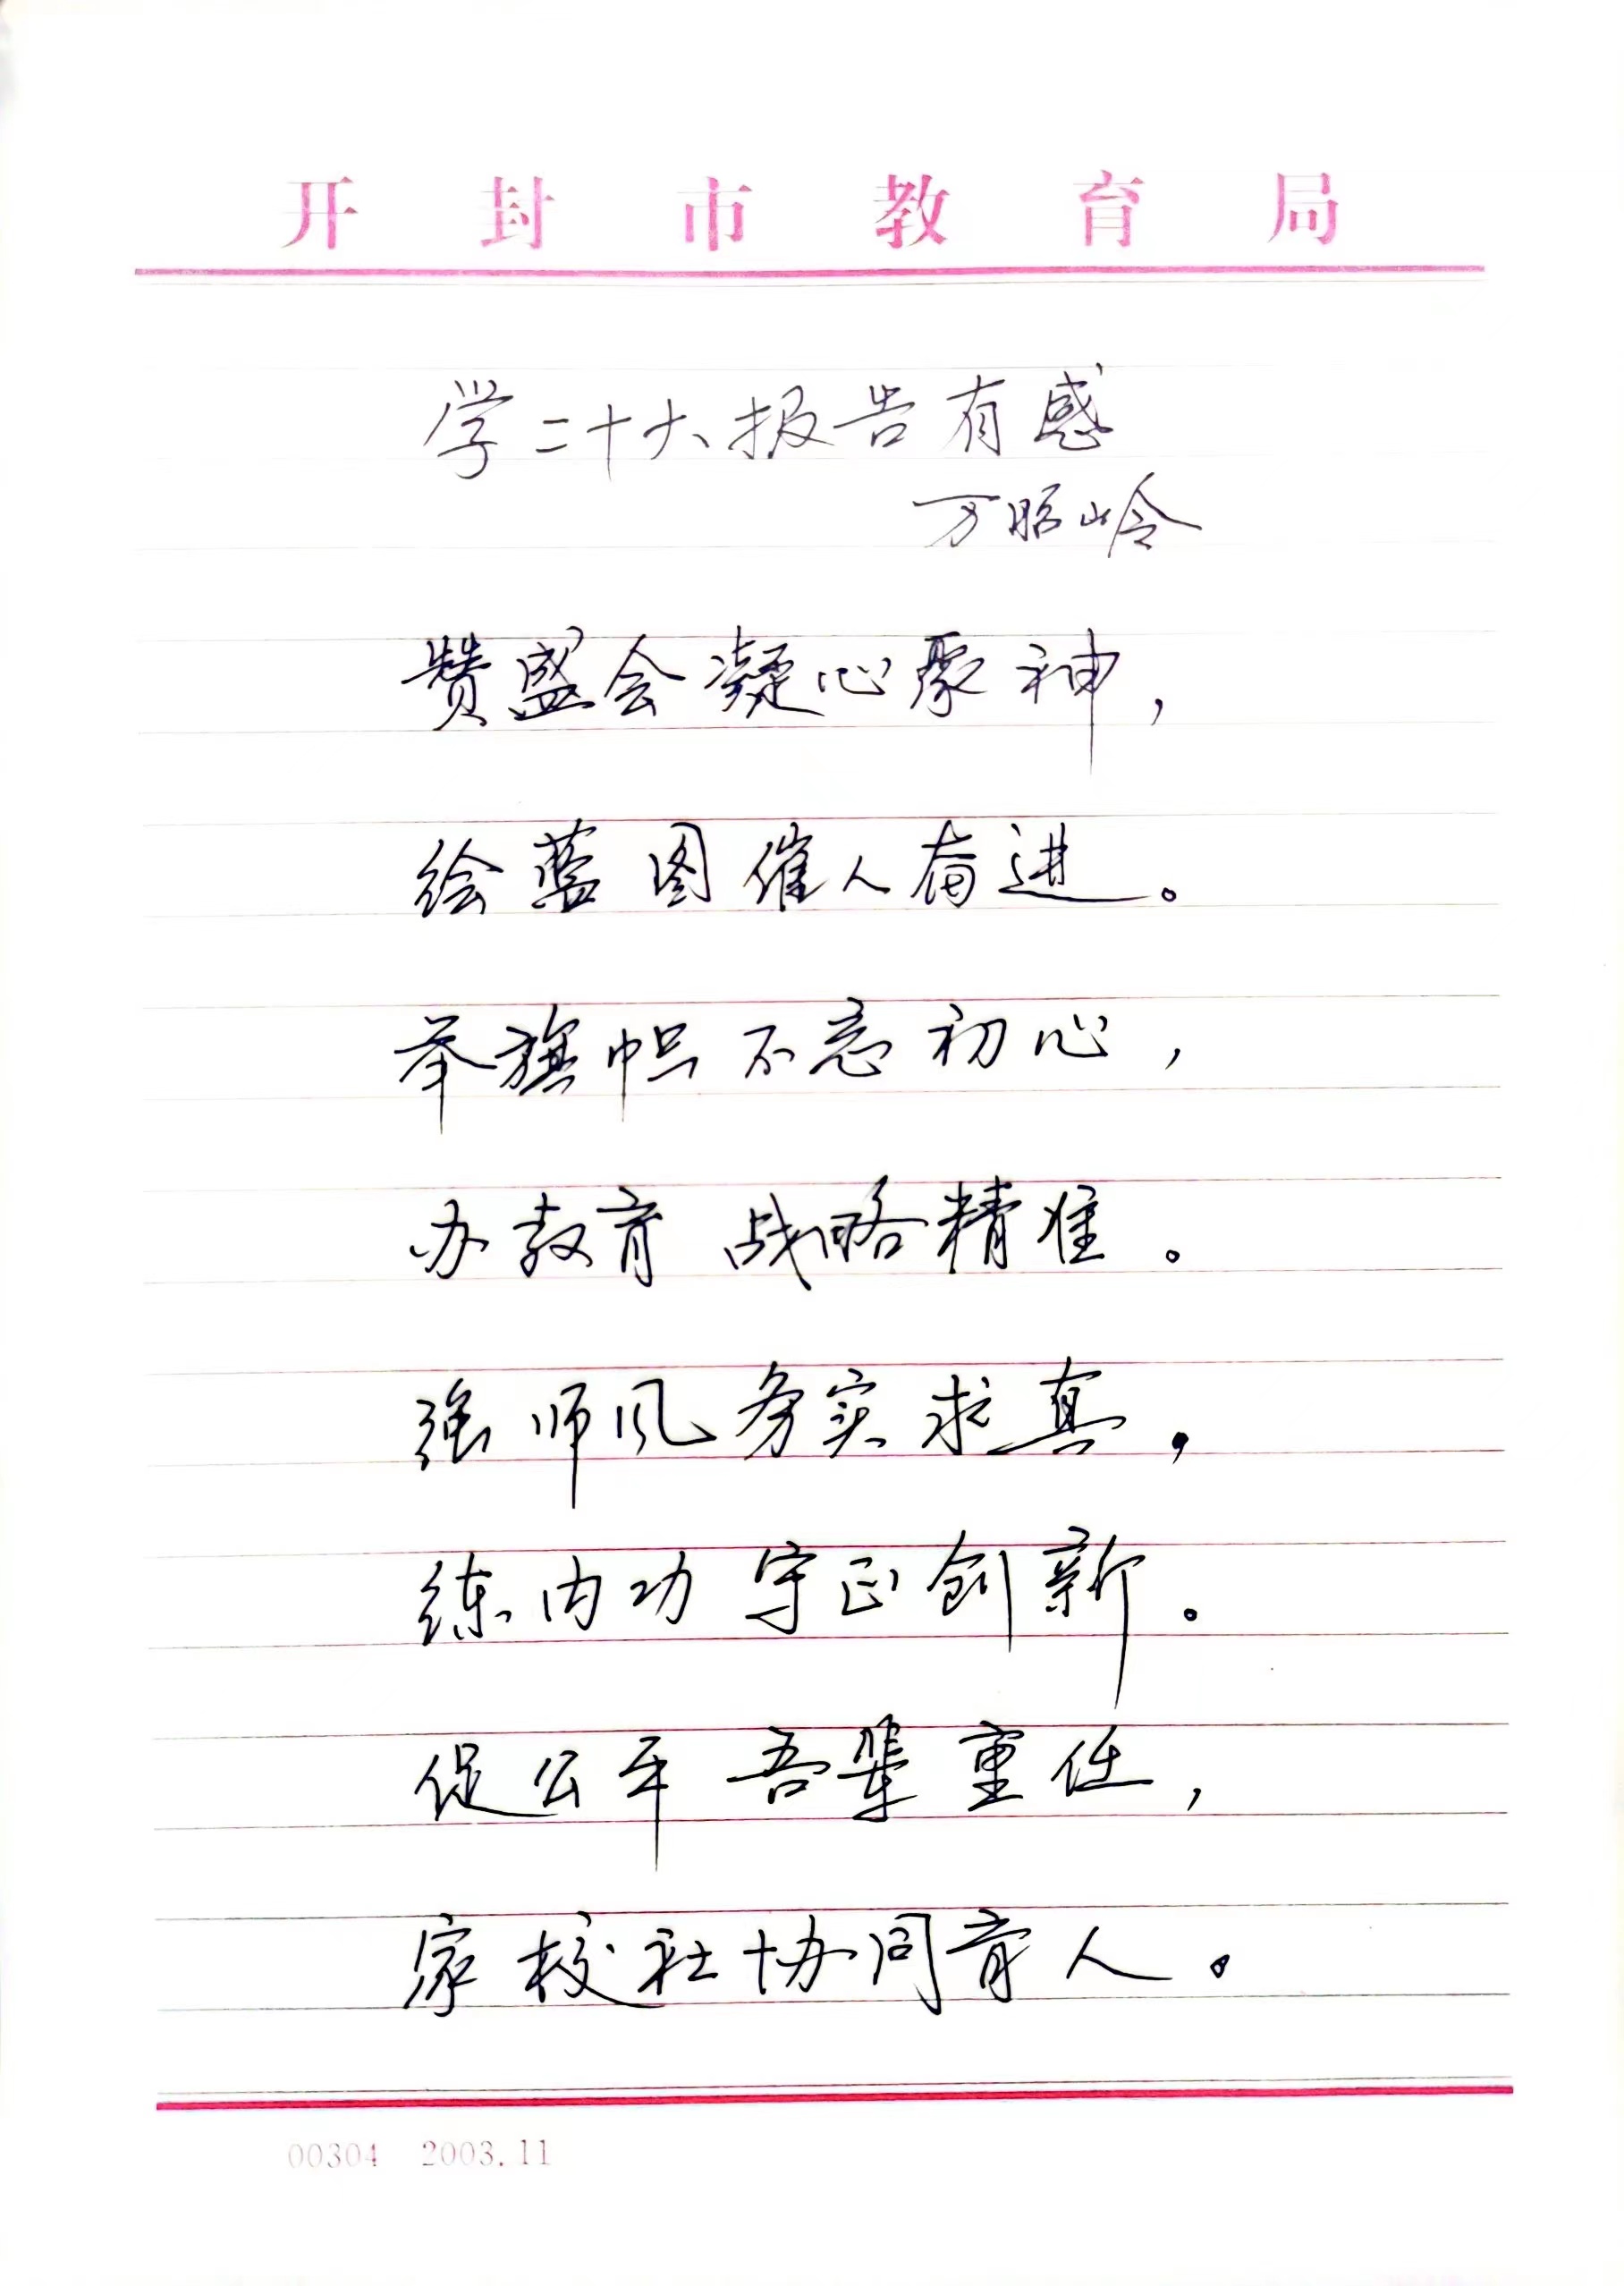 开封市教育局
学二十大报告有感
万昭岭
赞盛会凝心聚神，
绘蓝图催人奋进。
举旗帜不忘初心，
办教育战略精准。
强师风务实求真，
练内功守正创新。
促公平吾辈重任，
家校社协同育人。
00304 2003.11